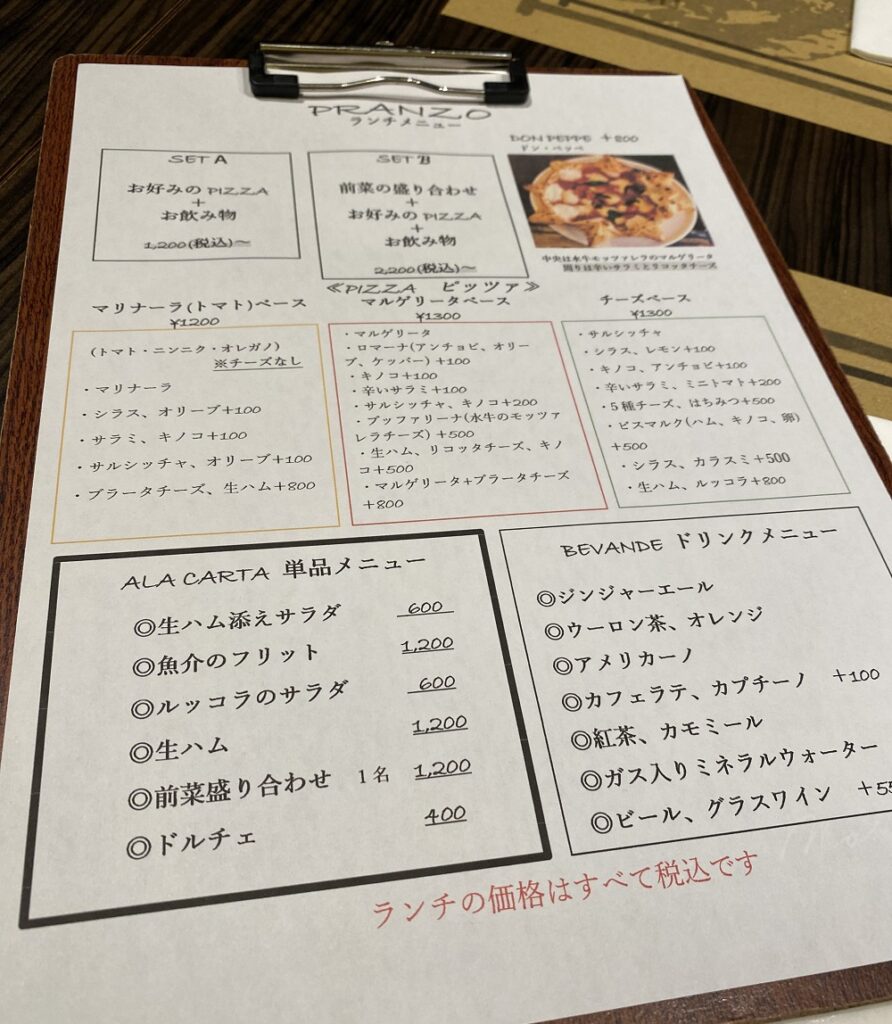 PRANZO
ランチメニュー
SET A
お好みの PIZZA
+
お飲み物
1,200(税込)~
SET B
前菜の盛り合わせ
+
お好みの PIZZA
+
お飲み物
2,200(税込)~
DON PEPPE +800
ドン・ペッペ
中央は水牛モッツァレラのマルゲリータ
周りは辛いサラミとリコッタチーズ
≪PIZZA ピッツァ≫
マリナーラ(トマト)ベース
¥1200
(トマト・ニンニク・オレガノ)
※チーズなし
・マリナーラ
・シラス、オリーブ+100
・サラミ、キノコ+100
・サルシッチャ、オリーブ+100
・ブラータチーズ、生ハム+800
マルゲリータベース
¥1300
・マルゲリータ
・ロマーナ(アンチョビ、オリー
ブ、ケッパー) +100
・キノコ+100
・辛いサラミ+100
・サルシッチャ、キノコ+200
・ブッファリーナ(水牛のモッツァ
レラチーズ) +500
・生ハム、リコッタチーズ、キノ
コ+500
・マルゲリータ+ブラータチーズ
+800
チーズベース
¥1300
・サルシッチャ
・シラス、レモン+100
・キノコ、アンチョビ+100
・辛いサラミ、ミニトマト+200
・5種チーズ、はちみつ+500
・ビスマルク(ハム、キノコ、卵)
+500
・シラス、カラスミ+500
・生ハム、ルッコラ+800
ALA CARTA 単品メニュー
◎生ハム添えサラダ 600
◎魚介のフリット 1,200
◎ルッコラのサラダ 600
◎生ハム 1,200
◎前菜盛り合わせ 1名 1,200
◎ドルチェ 400
BEVANDE ドリンクメニュー
◎ジンジャーエール
◎ウーロン茶、オレンジ
◎アメリカーノ
◎カフェラテ、カプチーノ +100
◎紅茶、カモミール
◎ガス入りミネラルウォーター
◎ビール、グラスワイン
ランチの価格はすべて税込です